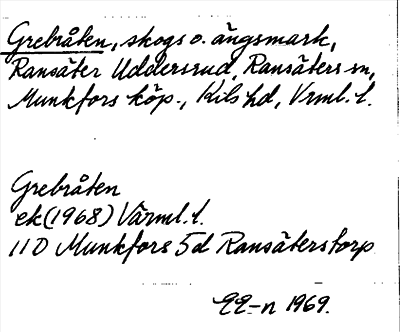 Grebråten, skogs o. ängsmark,
Ransäter Uddersrud, Ransäters sn,
Munkfors köp., Kils hd, Vrml. l.
Grebråten
ek (1968) Värml. l.
11D Munkfors 5d Ransäterstorp
1969.